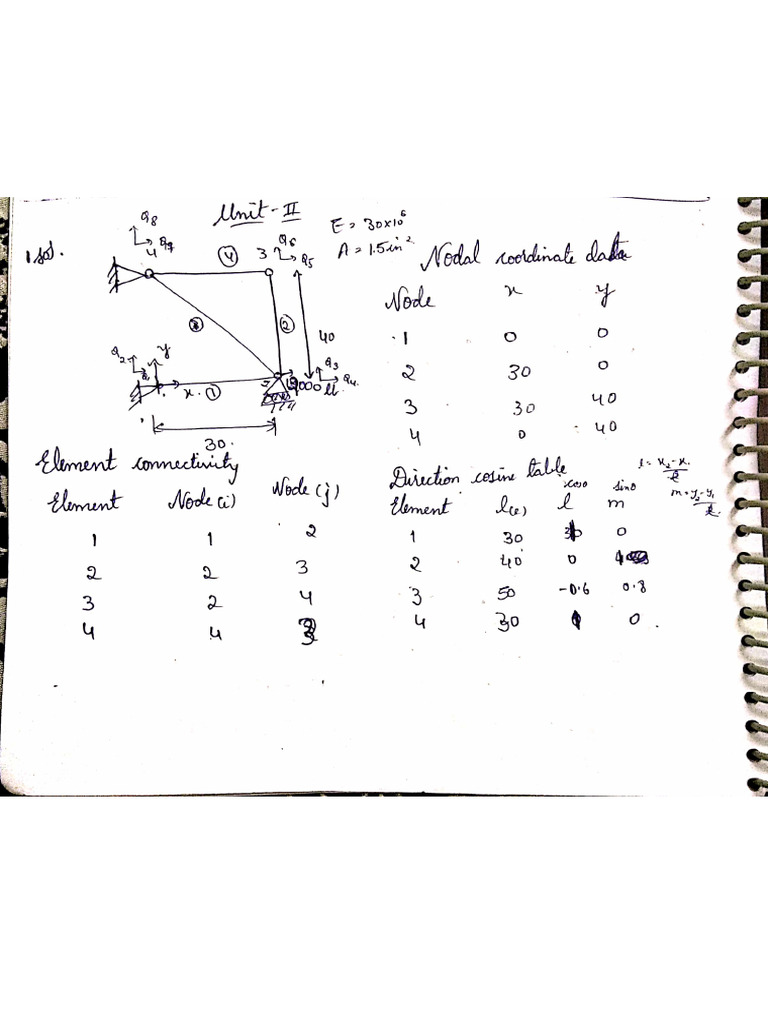 Unit - II
1 sol.
E = 30x10⁶
A = 1.5in²
Q8
Q7
4
④
3
Q6
Q5
③
②
40
Q2
y
x
①
2
Q3
Q4
30.
Nodal coordinate data
Node x y
1 0 0
2 30 0
3 30 40
4 0 40
Element connectivity
Element Node(i) Node(j)
1 1 2
2 2 3
3 2 4
4 4 3
Direction cosine table
l = x₂-x₁/l
m = y₂-y₁/l
cosθ sinθ
Element l(e) l m
1 30 1 0
2 40 0 1
3 50 -0.6 0.8
4 30 1 0